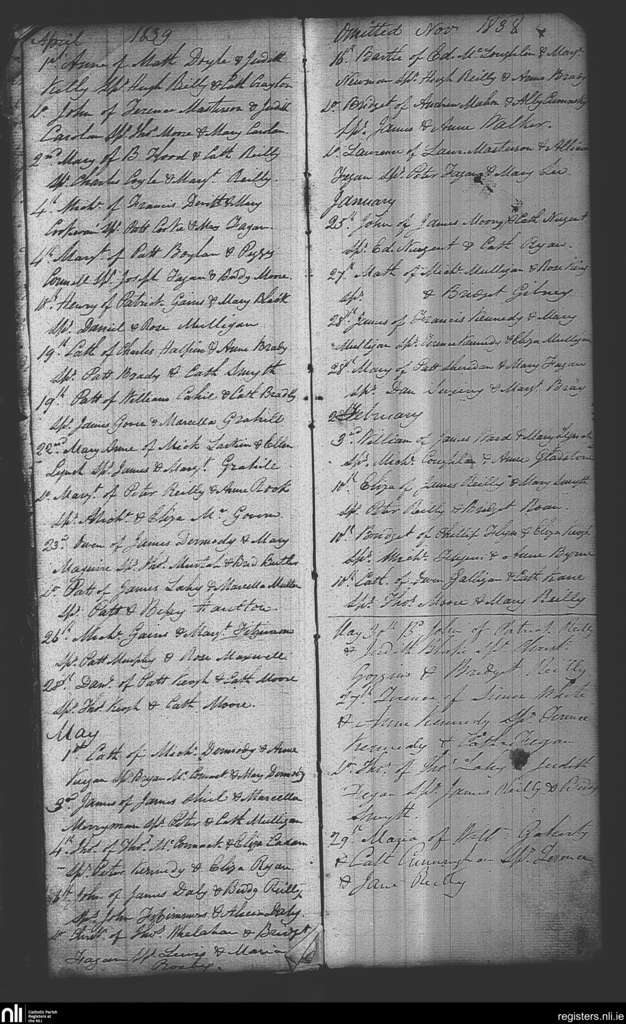 April 1839
1st Anne of Math Doyle & Judith
Kelly Sps Hugh Reilly & Cath Crayton
Do John of Terence Masterson & Judith
Carolan Sps Thos Moore & Mary Carolan
2nd Mary of B Flood & Cath Reilly
Sps Charles Coyle & Margt Reilly
4th Michl of Francis & Mary
Sps Patt & Mrs Fagan
4th Margt of Patt Boylan & Peggy
Connell Sps Joseph Fagan & Biddy Moore
18th Henry of Patrick Gains & Mary Black
Sps Daniel & Rose Mulligan
19th Cath of Charles Halfpin & Anne Brady
Sps Patt Brady & Cath Smyth
19th Patt of William Cahil & Cath Bradley
Sps James & Marcella Grahill
22nd Mary Anne of Mich Larkin & Ellen
Lynch Sps James & Margt Grahill
Do Margt of Peter Reilly & Anne Rook
Sps Michl & Eliza Mc Govern
23rd Owen of James Dermody & Mary
Maguire Sps Thos & Brid Butler
Do Patt of James Lahy & Marcella Mullen
Sps Patt & Betsy
26th Michl Gains & Margt Fitzsimon
Sps Patt Murphy & Rose Maxwell
29th Danl of Patt Keogh & Cath Moore
Sps Thos Keogh & Cath Moore
May
1st Cath of Michl Dermody & Anne
Keegan Sps Bryan Mc Connell & Mary Dermody
3rd James of James Shiel & Marcella
Merryman Sps Peter & Cath Mulligan
4th Thos of Thos Mc Cormack & Eliza
Sps Peter Kennedy & Eliza Ryan
John of James Daly & Biddy Reilly
Sps John Fitzsimmons & Alicia Daly
of Thos Whelahan & Bridgt
Fagan Sps Lewis & Maria
Omitted Nov 1838
16th Bartle of Ed. Mc Loughlin & Margt
Newman Sps Hugh Reilly & Anne Brady
Do Bridget of Andrew Mahon & Alley
Sps James & Anne Walker
Do Lawrence of Laur Masterson & Allicia
Fagan Sps Peter Fagan & Mary Lee
January
25th John of James Moony & Cath Nugent
Sps Ed. Nugent & Cath Ryan
27th Math of Michl Mulligan & Rose King
Sps & Bridget Gibney
28th James of Francis Kennedy & Mary
Mulligan Sps Terence Kennedy & Eliza Mulligan
28th Mary of Patt Sheridan & Mary Fagan
Sps Dan & Margt Bray
February
3rd William of James Ward & Mary
Sps Michl Coughlan & Anne Gladstone
10th Eliza of James Reilly & Mary Smyth
Sps Peter Reilly & Bridget Roan
10th Bridget of Phillip Flynn & Eliza Keogh
Sps Michl & Anne Byrne
10th Cath of Owen Galligan & Cath Kane
Sps Thos Moore & Mary Reilly
May John of Patrick Reilly
& Judith Sps
Goggins & Bridget Reilly
27th Terence of White
& Anne Kennedy Sps Terence
Kennedy & Cath Fagan
Do Thos of Thos Lahy & Judith
Fagan Sps James Reilly & Biddy
Smyth
29th Maria of Will Gaherty
& Cath Cunningham Sps Terence
& Jane Reilly
nli
Catholic Parish
Registers at
the NLI
registers.nli.ie